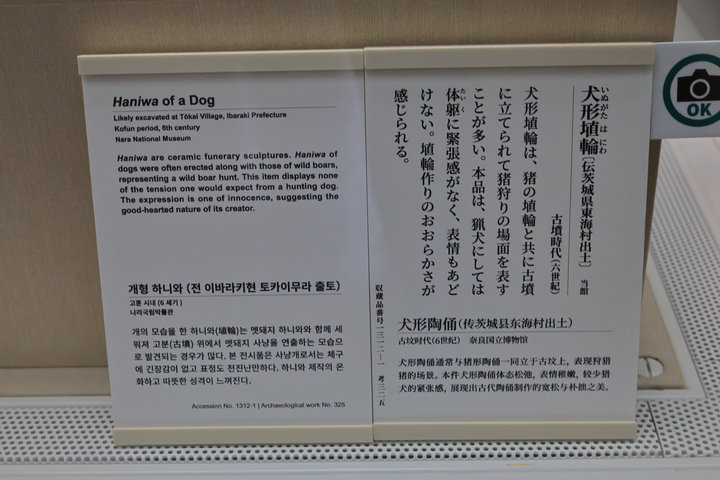 Haniwa of a Dog
Likely excavated at Tōkai Village, Ibaraki Prefecture
Kofun period, 6th century
Nara National Museum
Haniwa are ceramic funerary sculptures. Haniwa of
dogs were often erected along with those of wild boars,
representing a wild boar hunt. This item displays none
of the tension one would expect from a hunting dog.
The expression is one of innocence, suggesting the
good-hearted nature of its creator.
개형 하니와 (전 이바라키현 토카이무라 출토)
고훈 시대 (6 세기)
나라국립박물관
개의 모습을 한 하니와(埴輪)는 멧돼지 하니와와 함께 세
워져 고분(古墳) 위에서 멧돼지 사냥을 연출하는 모습으
로 발견되는 경우가 많다. 본 전시품은 사냥개로서는 체구
에 긴장감이 없고 표정도 천진난만하다. 하니와 제작의 온
화하고 따뜻한 성격이 느껴진다.
Accession No. 1312-1 | Archaeological work No. 325
いぬがた はにわ
犬形埴輪[伝茨城県東海村出土]
古墳時代(六世紀) 当館
犬形埴輪は、猪の埴輪と共に古墳
に立てられて猪狩りの場面を表す
ことが多い。本品は、猟犬にしては
たいく
体躯に緊張感がなく、表情もあど
けない。埴輪作りのおおらかさが
感じられる。
収蔵品番号一三一二−一 考三二五
犬形陶俑(传茨城县东海村出土)
古坟时代(6世纪) 奈良国立博物馆
犬形陶俑通常与猪形陶俑一同立于古坟上，表现狩猎
猪的场景。本件犬形陶俑体态松弛，表情稚嫩，较少猎
犬的紧张感，展现出古代陶俑制作的宽松与朴拙之美。
OK